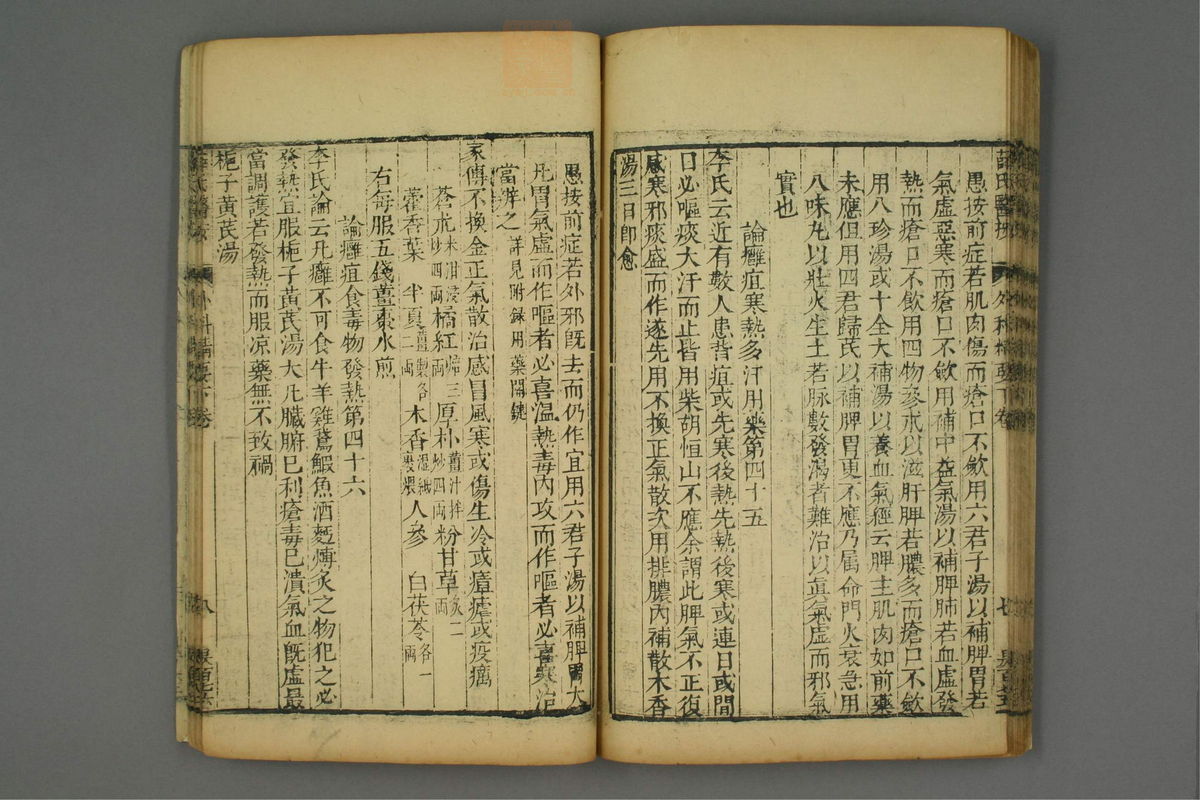 薛氏醫按 外科精要下卷 七
愚按前症若肌肉傷而瘡口不斂用六君子湯以補脾胃若
氣虛惡寒而瘡口不斂用補中益氣湯以補脾肺若血虛發
熱而瘡口不斂用四物參朮以滋肝脾若膿多而瘡口不斂
用八珍湯或十全大補湯以養血氣經云脾主肌肉如前藥
未應但用四君歸芪以補脾胃更不應乃屬命門火衰急用
八味丸以壯火生土若脉數發渴者難治以眞氣虛而邪氣
實也
論癰疽寒熱多汗用藥第四十五
李氏云近有數人患背疽或先寒後熱先熱後寒或連日或間
日必嘔痰大汗而止皆用柴胡恒山不應余謂此脾氣不正復
感寒邪痰盛而作遂先用不換正氣散次用排膿內補散木香
湯三日卽愈
愚按前症若外邪旣去而仍作宜用六君子湯以補脾胃大
凡胃氣虛而作嘔者必喜溫熱毒內攻而作嘔者必喜寒治
當辨之詳見附錄用藥閫鍵
家傳不換金正氣散治感冒風寒或傷生冷或瘴瘧或疫癘
蒼朮米泔浸炒四兩橘紅焙三兩厚朴薑汁拌炒四兩粉甘草炙二兩
藿香葉 半夏薑製各二兩木香濕紙裹煨人參 白茯苓各一兩
右每服五錢薑棗水煎
論癰疽食毒物發熱第四十六
李氏論云凡癰不可食牛羊雞鵞鰕魚酒麪煿炙之物犯之必
發熱宜服梔子黃芪湯大凡臟腑已利瘡毒已潰氣血旣虛最
當調護若發熱而服凉藥無不致禍
梔子黃芪湯
薛氏醫按 外科精要下卷 八